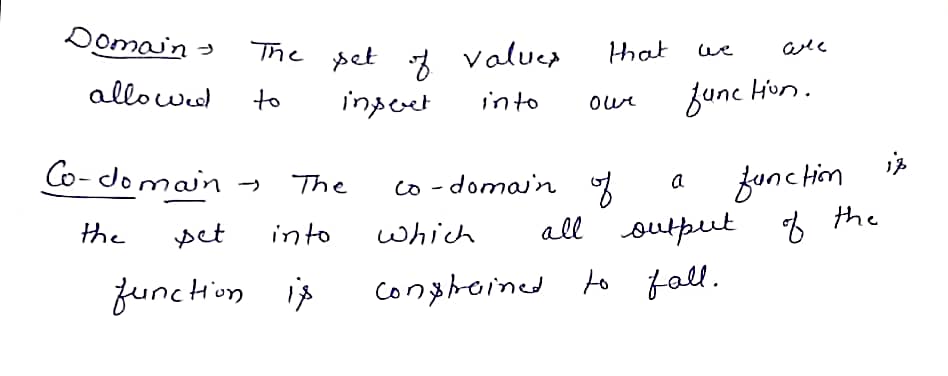 Domain → The set of values that we are
allowed to insert into our function.
Co-domain → The co-domain of a function is
the set into which all output of the
function is constrained to fall.